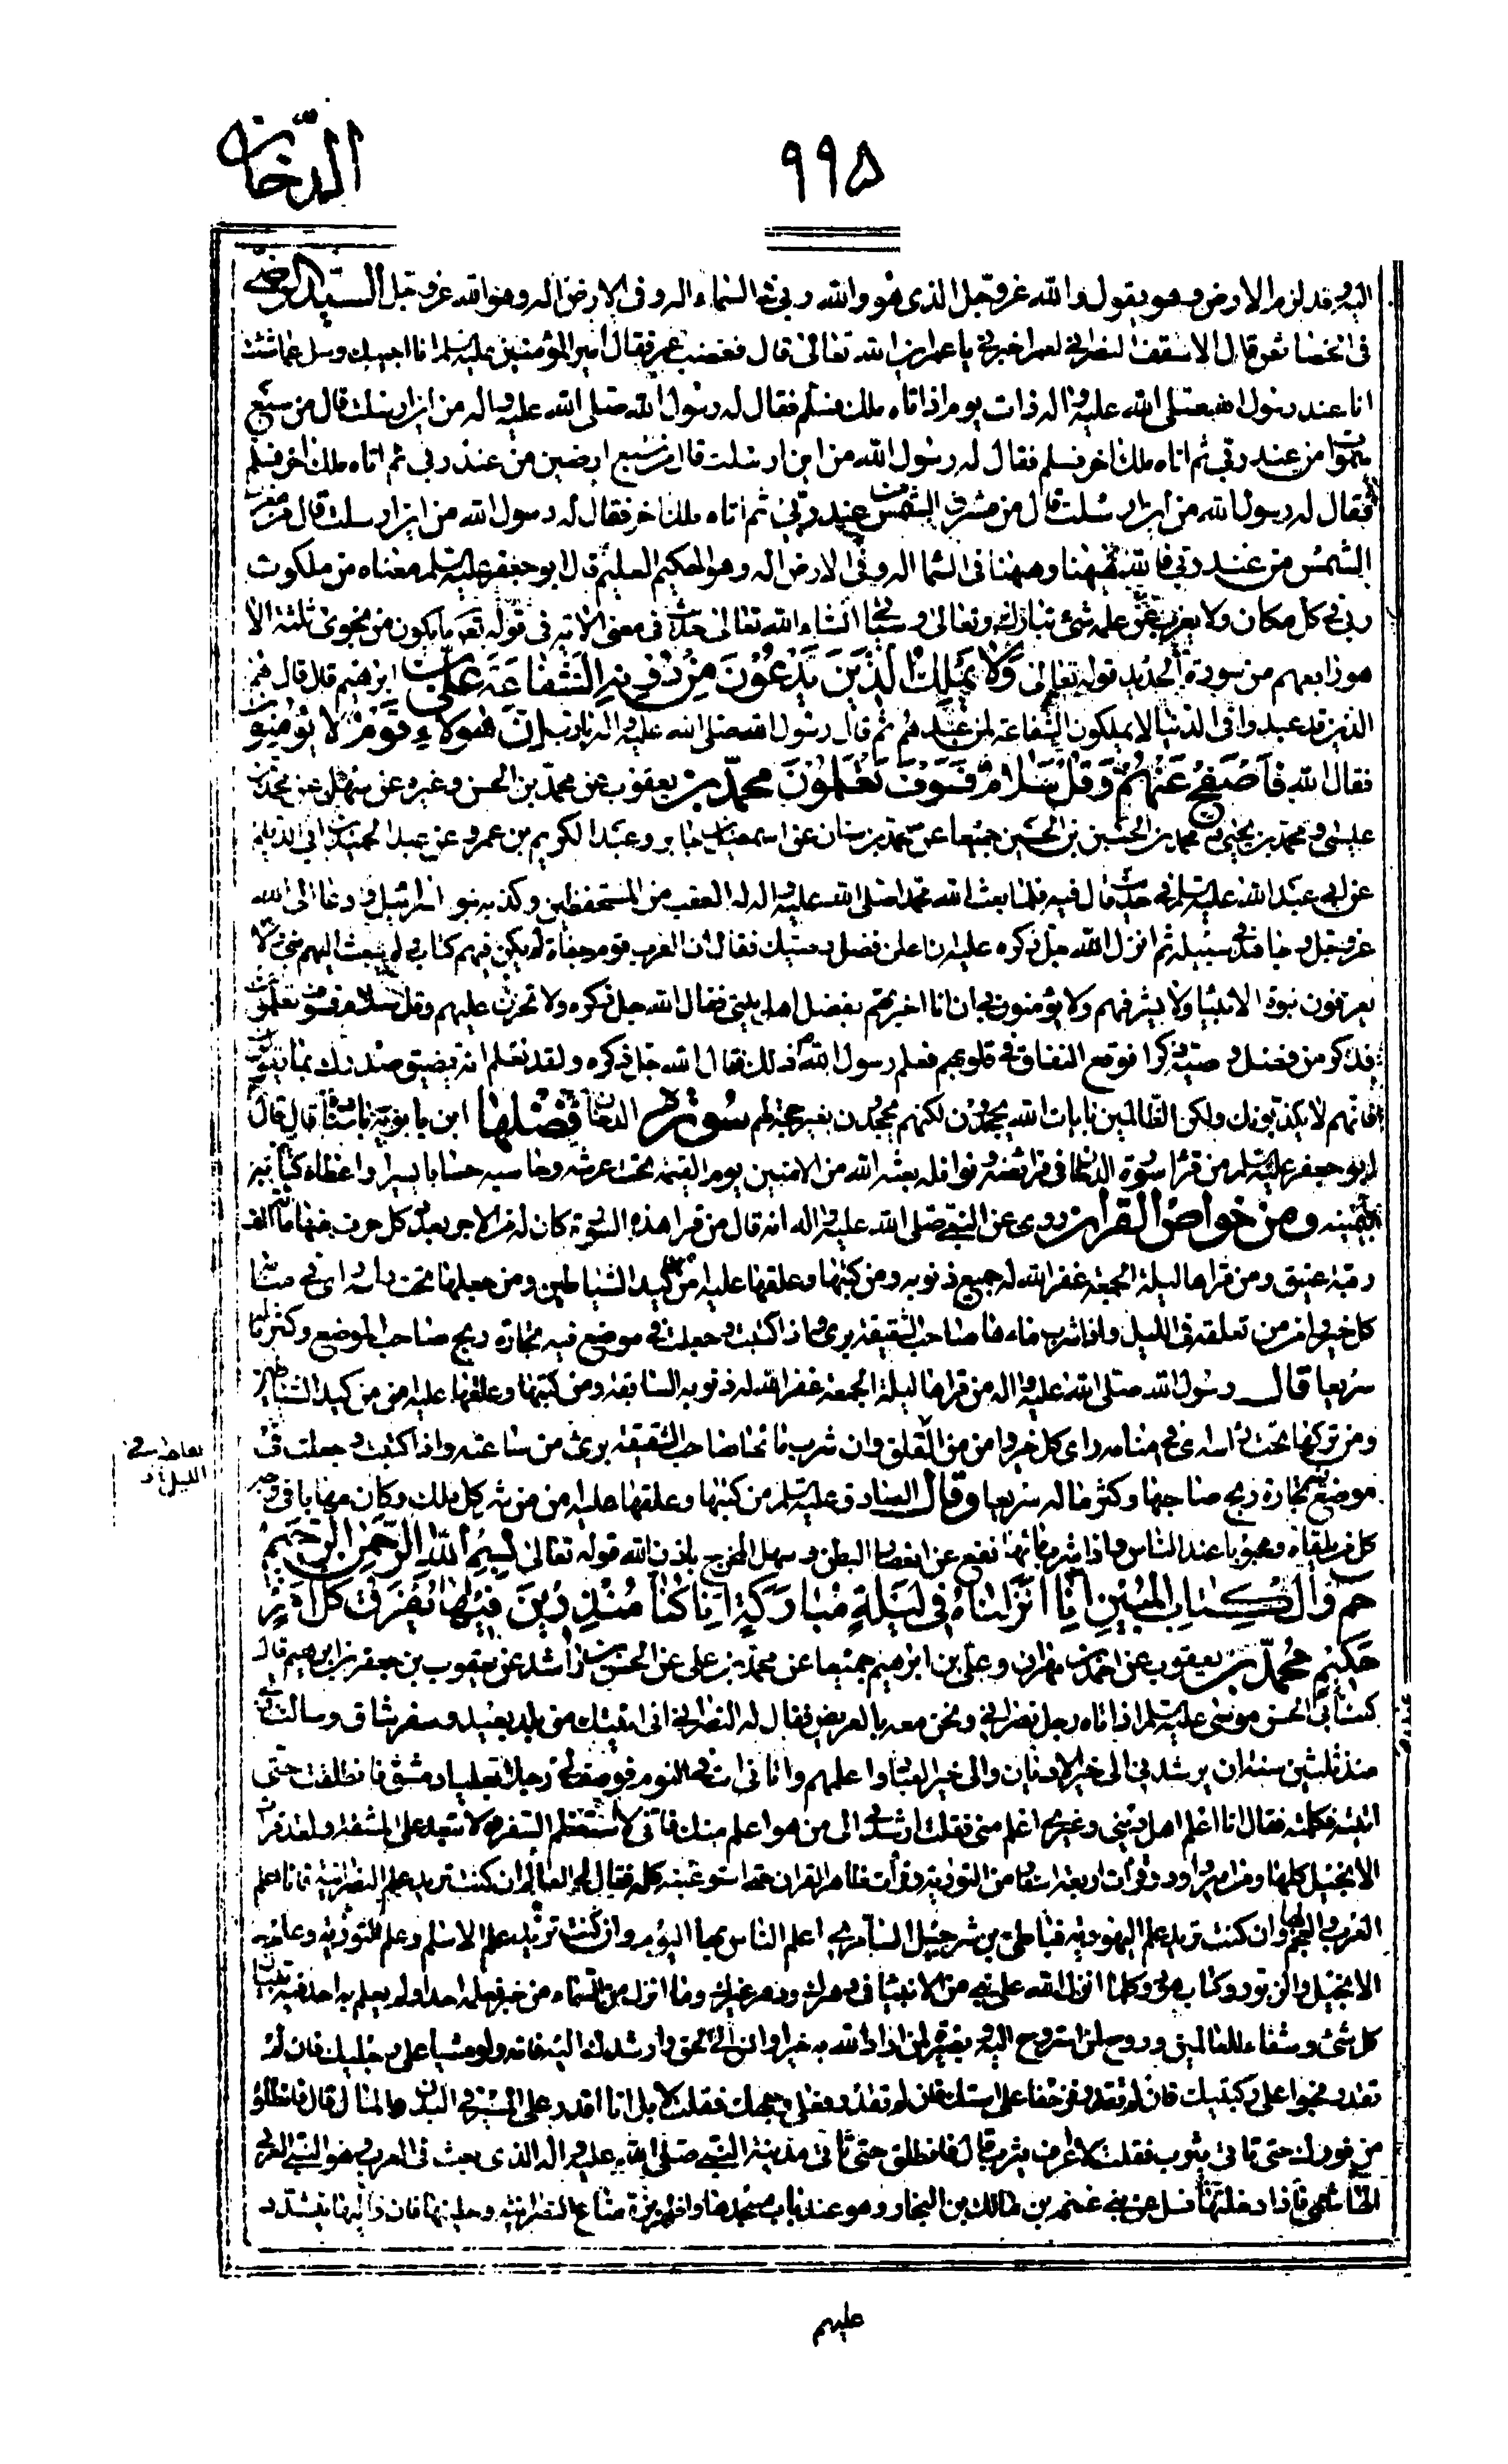 الدخان
٩٩٥
اليه وقد لزم الارض وهو يقول والله عز وجل الذى هو والله ربى فى السماء اله وفى الارض اله وهو الله عز وجل السيد الرضى
فى الخصائص قال الاسقف النصرانى لعمر اخبرنى يا عمر اين الله تعالى قال فغضب عمر فقال امير المؤمنين عليه السلم انا اجيبك وسل عما شئت
انا عند رسول الله صلى الله عليه واله ذات يوم اذ اتاه ملك فسلم فقال له رسول الله صلى الله عليه واله من اين ارسلت قال من سبع
سموات من عند ربى ثم اتاه ملك اخر فسلم فقال له رسول الله من اين ارسلت قال من سبع ارضين من عند ربى ثم اتاه ملك اخر فسلم
فقال له رسول الله من اين ارسلت قال من مشرق الشمس من عند ربى ثم اتاه ملك اخر فقال له رسول الله من اين ارسلت قال من مغرب
الشمس من عند ربى فالله ههنا وههنا فى السماء اله وفى الارض اله وهو الحكيم العليم قال ابو جعفر عليه السلم معناه من ملكوت
ربى فى كل مكان ولا يعزب عن علمه شئ تبارك وتعالى وسيجئ انشاء الله تعالى حديث فى معنى الاية فى قوله تعالى ما يكون من نجوى ثلثة الا
هو رابعهم من سورة الحديد قوله تعالى وَلَا يَمْلِكُ الَّذِينَ يَدْعُونَ مِنْ دُونِهِ الشَّفَاعَةَ على بن ابرهيم قال قال هم
الذين قد عبدوا فى الدنيا لا يملكون الشفاعة لمن عبدهم ثم قال رسول الله صلى الله عليه واله يا رب إِنَّ هَؤُلَاءِ قَوْمٌ لَا يُؤْمِنُونَ
فقال الله فَاصْفَحْ عَنْهُمْ وَقُلْ سَلَامٌ فَسَوْفَ تَعْلَمُونَ محمد بن يعقوب عن محمد بن الحسن وغيره عن سهل عن محمد بن
عيسى ومحمد بن يحيى ومحمد بن الحسين جميعا عن محمد بن سنان عن اسمعيل بن جابر وعبد الكريم بن عمرو عن عبد الحميد بن ابى الديلم
عن ابى عبد الله عليه السلم فى حديث قال فيه فلما بعث الله محمدا صلى الله عليه واله له العقب من المستحفظين وكذبه بنو اسرائيل ودعا الى الله
عز وجل وجاهد فى سبيله ثم انزل الله جل ذكره عليه ان اعلن فضل وصيك فقال ان العرب قوم جفاة لم يكن فيهم كتاب ولم يبعث اليهم نبى ولا
يعرفون نبوة الانبيا ولا شرفهم ولا يؤمنون بى ان انا اخبرتهم بفضل اهل بيتى فقال الله جل ذكره ولا تحزن عليهم وقل سلام فسوف تعلمون
فذكر من فضل وصيه ذكرا فوقع النفاق فى قلوبهم فعلم رسول الله ذلك فقال الله جل ذكره ولقد نعلم انه يضيق صدرك بما يقولون
فانهم لا يكذبونك ولكن الظالمين بايات الله يجحدون لكنهم يجحدون بغير حجة لهم سورة الدخان فضلها ابن بابويه باسناده قال قال
ابو جعفر عليه السلم من قرا سورة الدخان فى فرائضه ونوافله بعثه الله من الامنين يوم القيمة تحت عرشه وحاسبه حسابا يسيرا واعطاه كتابه
بيمينه ومن خواص القران روى عن النبى صلى الله عليه واله انه قال من قرا هذه السورة كان له من الاجر بعدد كل حرف منها ماة الف
رقبة عتيق ومن قراها ليلة الجمعة غفر الله له جميع ذنوبه ومن كتبها وعلقها عليه امن من كيد الشياطين ومن جعلها تحت راسه راى فى منامه
كل خير وامن من قلقه فى الليل واذا شرب ماءها صاحب الشقيقة برئ واذا كتبت وجعلت فى موضع فيه تجارة ربح صاحب الموضع وكثر ماله
سريعا قال رسول الله صلى الله عليه واله من قراها ليلة الجمعة غفر الله له ذنوبه السابقة ومن كتبها وعلقها عليه امن من كيد الشياطين
ومن تركها تحت راسه فى منامه راى كل خير وامن من القلق وان شرب ماءها صاحب الشقيقة برئ من ساعته واذا كتبت وجعلت فى
موضع فيه تجارة ربح صاحبها وكثر ماله سريعا وقال الصادق عليه السلم من كتبها وعلقها عليه امن من شر كل ملك وكان مهابا فى وجه
كل من يلقاه ومحبوبا عند الناس واذا شرب مائها نفع من انعصار البطن وسهل المخرج باذن الله قوله تعالى بِسْمِ اللَّهِ الرَّحْمَنِ الرَّحِيمِ
حم وَالْكِتَابِ الْمُبِينِ إِنَّا أَنْزَلْنَاهُ فِى لَيْلَةٍ مُبَارَكَةٍ إِنَّا كُنَّا مُنْذِرِينَ فِيهَا يُفْرَقُ كُلُّ أَمْرٍ
حَكِيمٍ محمد بن يعقوب عن احمد بن مهران وعلى بن ابرهيم جميعا عن محمد بن على عن الحسن بن راشد عن يعقوب بن جعفر بن ابرهيم قال
كنت عند ابى الحسن موسى عليه السلم اذ اتاه رجل نصرانى ونحن معه بالعريض فقال له النصرانى انى اتيتك من بلد بعيد وسفر شاق وسالت ربى
منذ ثلثين سنة ان يرشدنى الى خير الاديان والى خير العباد واعلمهم واتانى ات فى النوم فوصف لى رجلا بعليا دمشق فانطلقت حتى
اتيته فكلمته فقال انا اعلم اهل دينى وغيرى اعلم منى فقلت ارشدنى الى من هو اعلم منك فانى لا استعظم السفر ولا تبعد على الشقة ولقد قرات
الانجيل كلها ومزامير داود وقرأت اربعة اسفار من التورية وقرأت ظاهر القران حتى استوعبته كله فقال لى العالم ان كنت تريد علم النصرانية فانا اعلم
العرب والعجم بها وان كنت تريد علم اليهودية فباطى بن شرحبيل السامرى اعلم الناس بها اليوم وان كنت تريد علم الاسلم وعلم التورية وعلم
الانجيل والزبور وكتاب هود وكلما انزل الله على نبى من الانبيا فى دهرك ودهر غيرك وما انزل من السماء من خبر فعلمه احد او لم يعلم به احد فيه تبيان
كل شئ وشفاء للعالمين وروح لمن استروح اليه وبصيرة لمن اراد الله به خيرا وانس الى الحق وارشدك اليه فاته ولو مشيا على رجليك فان لم
تقدر فحبوا على ركبتيك فان لم تقدر فزحفا على استك فان لم تقدر فعلى وجهك فقلت لا بل انا اقدر على المسير فى البدن والمال قال فانطلق
من فورك حتى تاتى يثرب فقلت لا اعرف يثرب قال فانطلق حتى تاتى مدينة النبى صلى الله عليه واله الذى بعث فى العرب وهو النبى العربى
الهاشمى فاذا دخلتها فسل عن بنى غنم بن مالك بن النجار وهو عند باب مسجدها واظهر بزة النصرانية وحليتها فان واليها يتشدد
عليهم